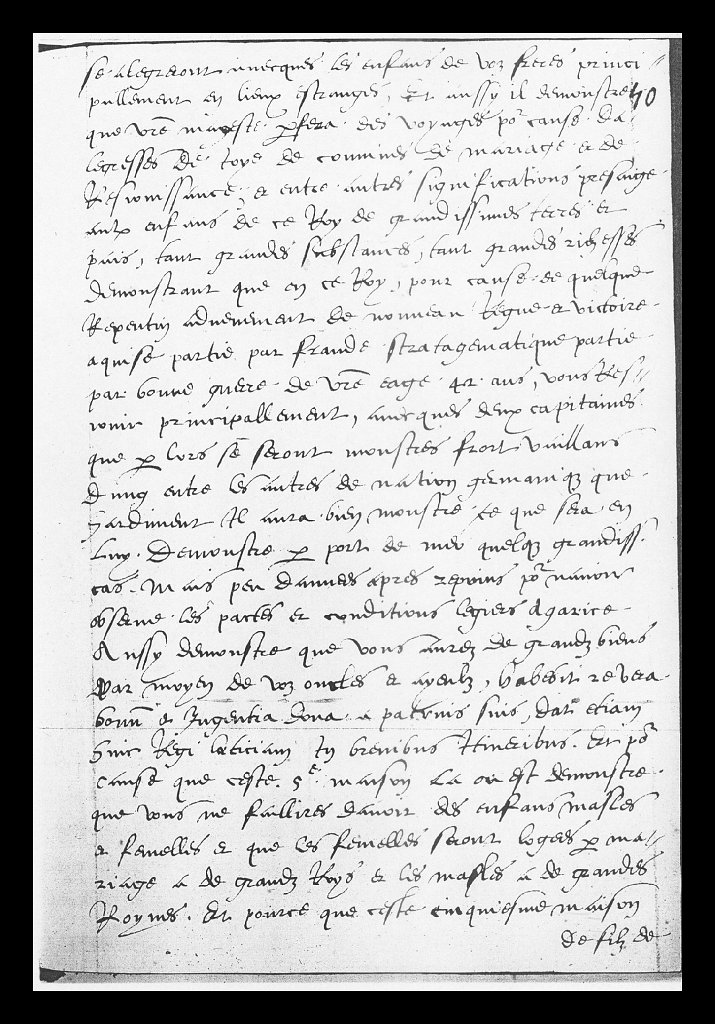 se alegreront avecques les enfans de voz freres princi=
pallement en lieux estranges, Et aussy il demonstre 50
que vre mageste p fera des voyages po cause da
legresses de joye de convives de mariage et de
Resiouissance, et entre autres significations presaige
aulx enfans de ce Roy de grandissimes terres et
pais, tant grandes substances, tant grandes richesses
demonstrant que en ce Roy, pour cause de quelque
Repentin advenement de nouveau Regne et victoire
aquise partie par fraude stratagematique partie
par bonne guerre de vre eage 42 ans, vous Res=
iouir principallement, avecques deux capitaines
que p lors se seront monstres fort vaillans
dung entre les autres de nation germaniq que
hardiment Il aura bien monstre ce que sera en
Luy. Demonstre p port de mer quelq grandiss
cas. Mais peu dannees apres po navoir
observe les pactes et conditions legiers
Aussy demonstre que vous aurez de grandz biens
Par moyen de voz oncles et ayeulz, habebit revera
bona et Ingentia dona a patruis suis, dat etiam
huic Regi lætitiam In brevibus Itineribus. Et po
cause que ceste 5e maison La ou est demonstre
que vous ne faillires davoir des enfans masles
et femelles et que les femelles seront logees p ma=
riage a de grandz Roys et les masles a de grandes
Roynes. Et pource que ceste cinquiesme maison
de filz de